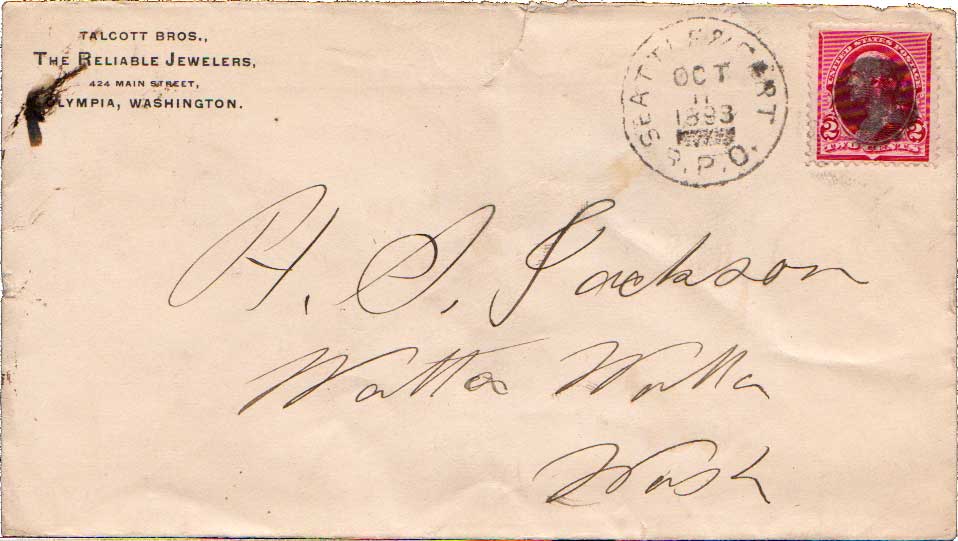 TALCOTT BROS.,
THE RELIABLE JEWELERS,
424 MAIN STREET,
OLYMPIA, WASHINGTON.
SEATTLE & PORT
OCT
11
1893
R.P.O.
UNITED STATES POSTAGE
2 2
H. S. Jackson
Walla Walla
Wash